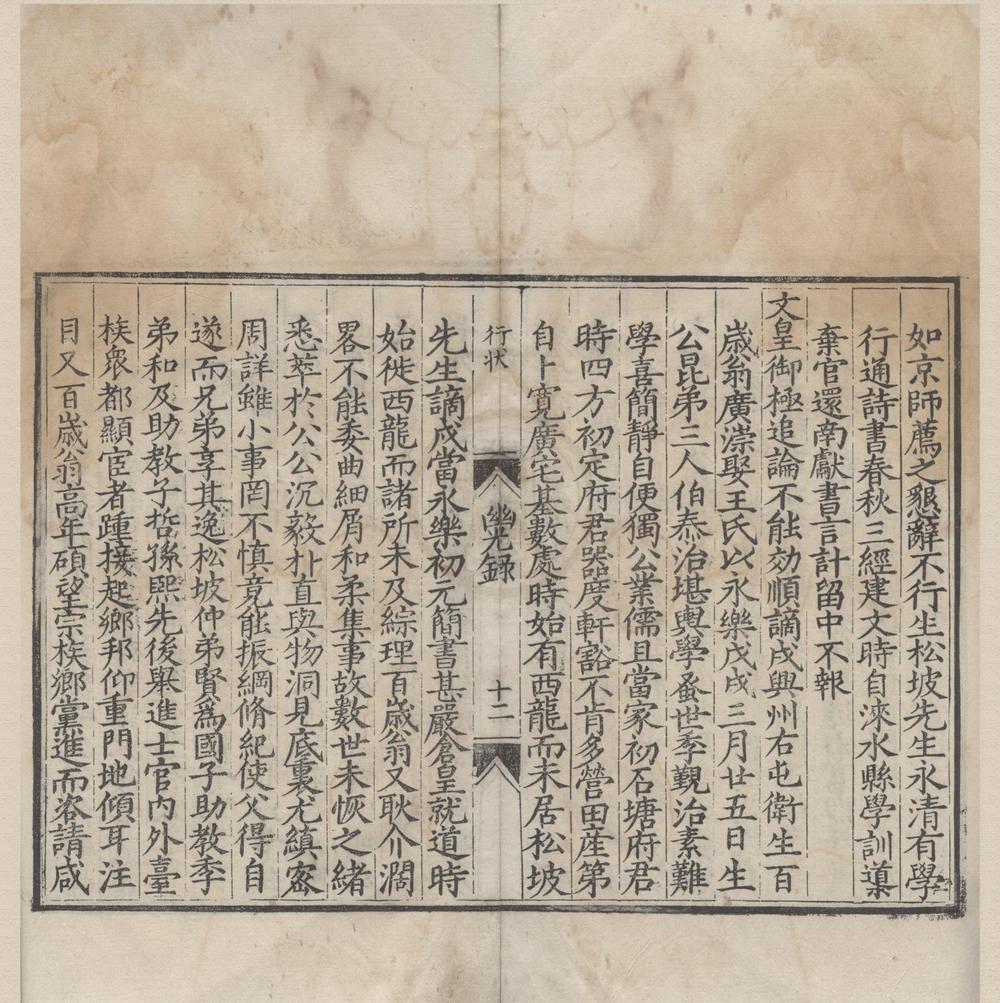 如京師薦之懇辭不行生松坡先生永清有學
行通詩書春秋三經建文時自淶水縣學訓導
棄官還南獻書言計留中不報
文皇御極追論不能効順謫戍興州右屯衛生百
歳翁廣崇娶王氏以永樂戊戌三月廿五日生
公昆弟三人伯泰治堪輿學蚤世季覲治素難
學喜簡靜自便獨公業儒且當家初石塘府君
時四方初定府君器度軒豁不肯多營田産第
自卜寛廣宅基數處時始有西龍而未居松坡
行状
幽光録
十二
先生謫戍當永樂初元簡書甚嚴倉皇就道時
始徙西龍而諸所未及綜理百歳翁又耿介濶
畧不能委曲細屑和柔集事故數世未恢之緒
悉萃於公公沉毅朴直與物洞見底裏尤縝宻
周詳雖小事罔不慎竟能振綱脩紀使父得自
遂而兄弟享其逸松坡仲弟賢爲國子助教季
弟和及助教子哲孫熙先後舉進士官内外臺
族衆都顯宦者踵接起鄉邦仰重門地傾耳注
目又百歳翁高年碩望宗族鄉黨進而咨請咸